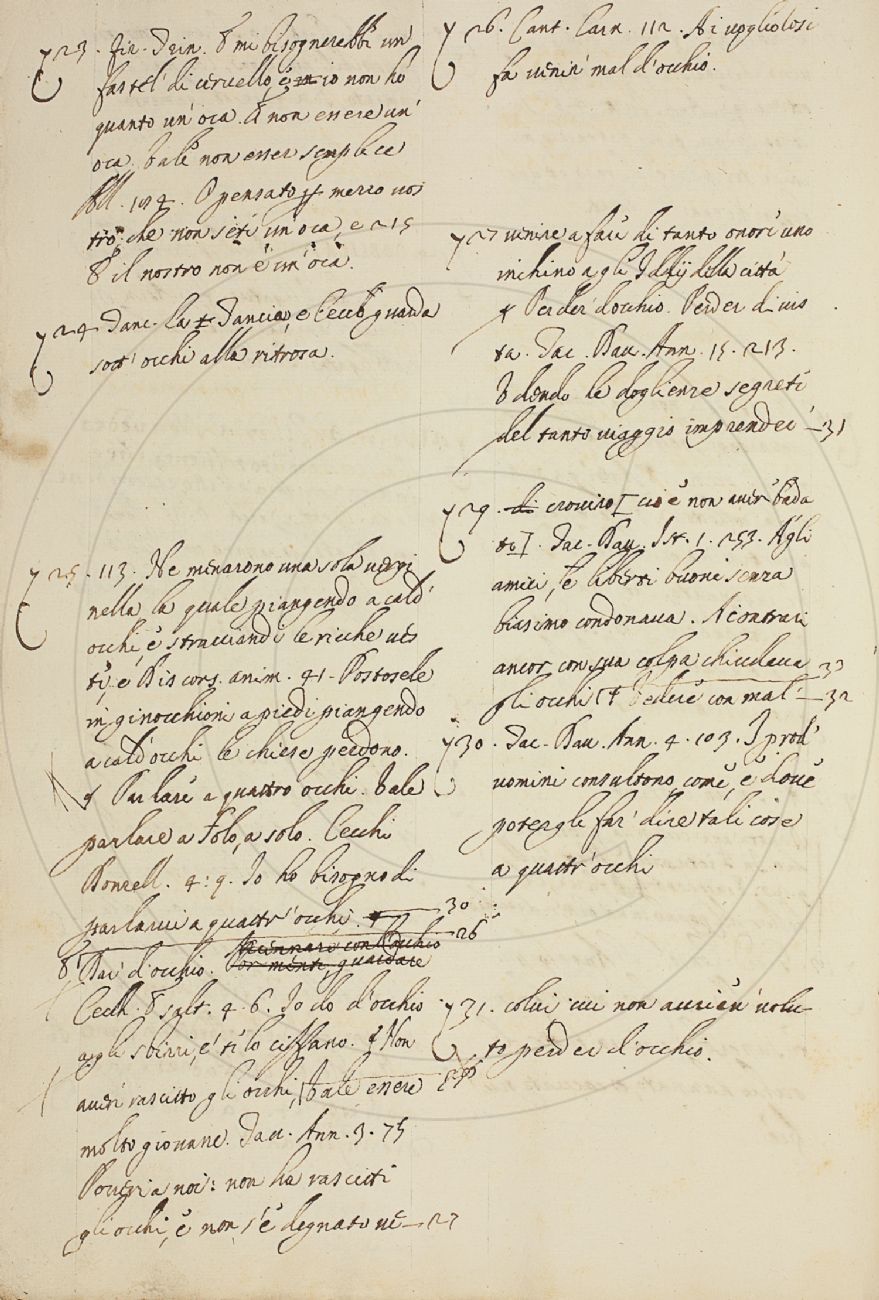 23. Fir. Trin. E mi bisognerebbe un
fastel di cervello, e io non ho
quanto un'oca. E non essere un'
oca. Vale non esser semplice
All. 194. O pensato per merto vos
tro, che non seti un'oca, e 215
E il nostro non è un oca.
24. Tanc. La Tancia, e Cecco guarda
sott'occhi alla ritrosa.
25. 113. Ne menarono una sola vergi
nella la quale piangendo a cald'
occhi, e stracciandi le ricche ves
ti, e Discors. anim. 41. Postosele
inginocchioni a piedi piangendo
a cald'occhi le chiese perdono.
Parlare a quattro occhi. Vale
parlare a solo, a solo. Cecchi
Donzell. 4: 9. Io ho bisogno di
parlarvi a quattr'occhi. 30
Accennare con l'occhio 26
Dar d'occhio.
por mente, guardare
Cecch. Esalt. 4. 6. Io do d'occhio
agli sbirri, e ti lo ciuffano. Non
aver rasciutto gli occhi, Vale essere
molto giovane. Tac. Ann. 3. 75
Poveri a noi: non ha rasciutti
gli occhi, e non s'è degnato ve 27
26. Cant. Carn. 112. Ai vogliolosi
fa venir mal d'occhio.
27 venire a fare di tanto onore uno
inchino a gli Iddij della città
Perder d'occhio. Perder di vis
ta. Tac. Dav. Ann. 15. 213.
E dendo le doglienze segrete
del tanto viaggio imprender 31
29. di crovciro [cioè non aver bada
to]. Tac. Dav. Ist. 1. 253. Agli
amici, e liberti buoni senza
biasimo condonava. A contrari
ancor con sua colpa chiudeva 33
gli occhi Vedere con mal' 32
30. Tac. Dav. Ann. 4. 103. I prod'
uomini consultono, come, e dove
potergli far dire tali cose
a quattr'occhi
31. colui cui non avrien' volu-
to perder d'occhio.